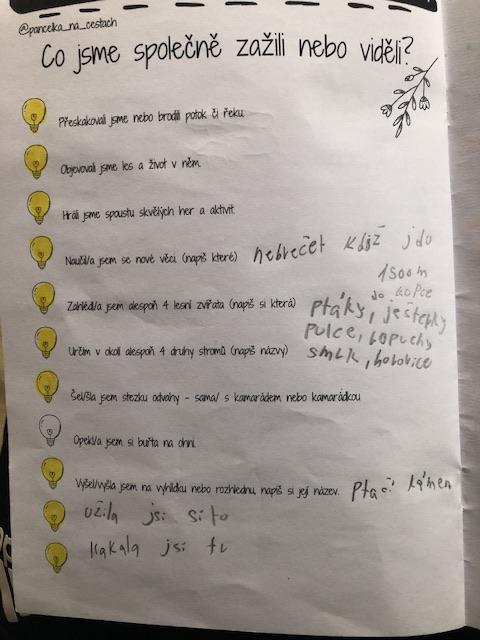 @pancelka_na_cestach
Co jsme společně zažili nebo viděli?
Přeskakovali jsme nebo brodili potok či řeku.
Objevovali jsme les a život v něm.
Hráli jsme spoustu skvělých her a aktivit.
Naučil/a jsem se nové věci (napiš které) nebrečet když jdu
1500m
do kopce
Zahlédl/a jsem alespoň 4 lesní zvířata (napiš si která) ptáky, ještěrky
pulce, ropuchy
Určím v okolí alespoň 4 druhy stromů (napiš názvy) smrk, borovice
Šel/šla jsem stezku odvahy - sama/ s kamarádem nebo kamarádkou
Opekl/a jsem si buřta na ohni.
Vyšel/vyšla jsem na vyhlídku nebo rozhlednu, napiš si její název. Ptačí kámen
užila jsi si to
kakala jsi tu